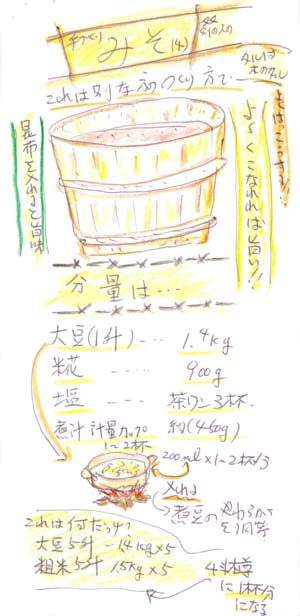 手づくり
みそ(4)
タルは
木のタル
これは別な家のつくり方で
昆布を入れると旨味
よ〜くこなれれば旨い!!
分量は…
大豆(1升)--- 1.4kg
糀 ---- 900g
塩 ---- 茶ワン3杯
約(450g)
煮汁 計量カップ
1〜2杯
200ml×1〜2杯分
これは
煮豆の
これは何だっけ
大豆5升 --- 1.4kg×5
粗米5升 1.5kg×5
4斗樽
に1杯分
になる